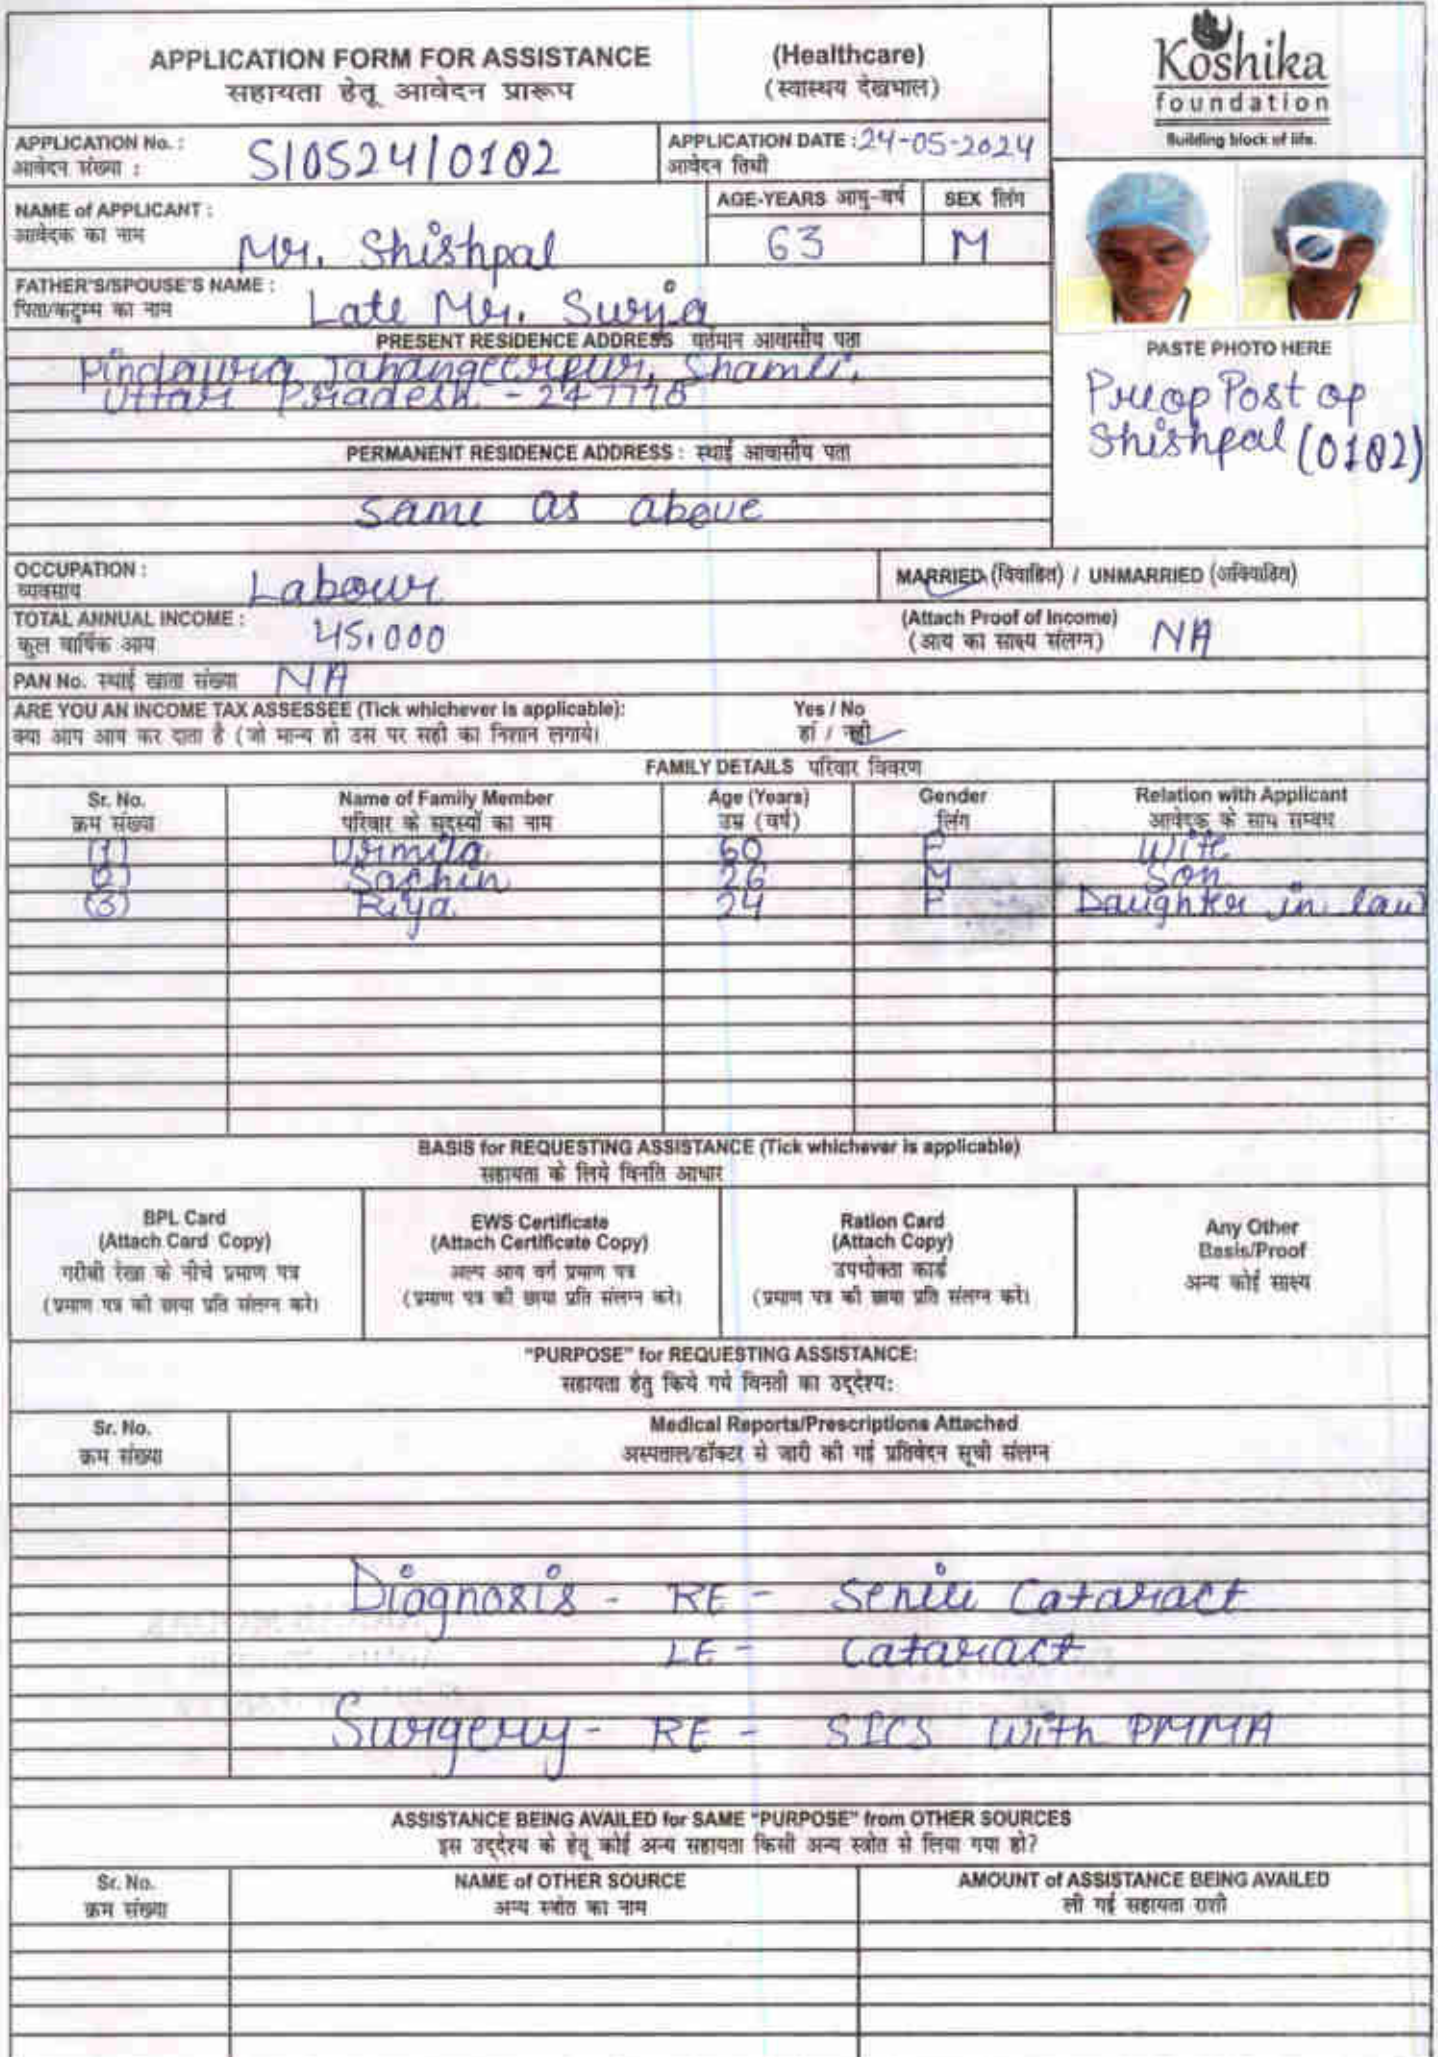 APPLICATION FORM FOR ASSISTANCE (Healthcare)
सहायता हेतू आवेदन प्रारूप (स्वास्थय देखभाल)
Koshika
foundation
Building block of life.
APPLICATION No. : S10524/0102
आवेदन संख्या :
APPLICATION DATE : 24-05-2024
आवेदन तिथी
NAME of APPLICANT : Mr. Shishpal
आवेदक का नाम
AGE-YEARS आयु-वर्ष 63
SEX लिंग M
FATHER'S/SPOUSE'S NAME : Late Mr. Surja
पिता/कटुम्प का नाम
PRESENT RESIDENCE ADDRESS वर्तमान आवासीय पता
Pindaura Jahangeerpur, Shamli,
Uttar Pradesh - 247778
PERMANENT RESIDENCE ADDRESS : स्थाई आवासीय पता
Same as above
PASTE PHOTO HERE
Preop Post op
Shishpal (0102)
OCCUPATION : Labour
व्यवसाय
MARRIED (विवाहित) / UNMARRIED (अविवाहित)
TOTAL ANNUAL INCOME : 45,000
कुल वार्षिक आय
(Attach Proof of Income) NA
(आय का साक्ष्य संलग्न)
PAN No. स्थाई खाता संख्या NA
ARE YOU AN INCOME TAX ASSESSEE (Tick whichever is applicable): Yes / No
क्या आप आय कर दाता है (जो मान्य हो उस पर सही का निशान लगाये। हाँ / नहीं
FAMILY DETAILS परिवार विवरण
Sr. No. Name of Family Member Age (Years) Gender Relation with Applicant
क्रम संख्या परिवार के सदस्यों का नाम उम्र (वर्ष) लिंग आवेदक के साथ सम्बंध
(1) Urmila 60 F Wife
(2) Sachin 26 M Son
(3) Riya 24 F Daughter in law
BASIS for REQUESTING ASSISTANCE (Tick whichever is applicable)
सहायता के लिये विनति आधार
BPL Card
(Attach Card Copy)
गरीबी रेखा के नीचे प्रमाण पत्र
(प्रमाण पत्र की छाया प्रति संलग्न करे।
EWS Certificate
(Attach Certificate Copy)
अल्प आय वर्ग प्रमाण पत्र
(प्रमाण पत्र की छाया प्रति संलग्न करे।
Ration Card
(Attach Copy)
उपभोक्ता कार्ड
(प्रमाण पत्र की छाया प्रति संलग्न करे।
Any Other
Basis/Proof
अन्य कोई साक्ष्य
"PURPOSE" for REQUESTING ASSISTANCE:
सहायता हेतु किये गये विनती का उद्देश्य:
Sr. No. Medical Reports/Prescriptions Attached
क्रम संख्या अस्पताल/डॉक्टर से जारी की गई प्रतिवेदन सूची संलग्न
Diagnosis - RE - Senile Cataract
LE - Cataract
Surgery - RE - SICS with PMMA
ASSISTANCE BEING AVAILED for SAME "PURPOSE" from OTHER SOURCES
इस उद्देश्य के हेतू कोई अन्य सहायता किसी अन्य स्त्रोत से लिया गया हो?
Sr. No. NAME of OTHER SOURCE AMOUNT of ASSISTANCE BEING AVAILED
क्रम संख्या अन्य स्त्रोत का नाम ली गई सहायता राशी